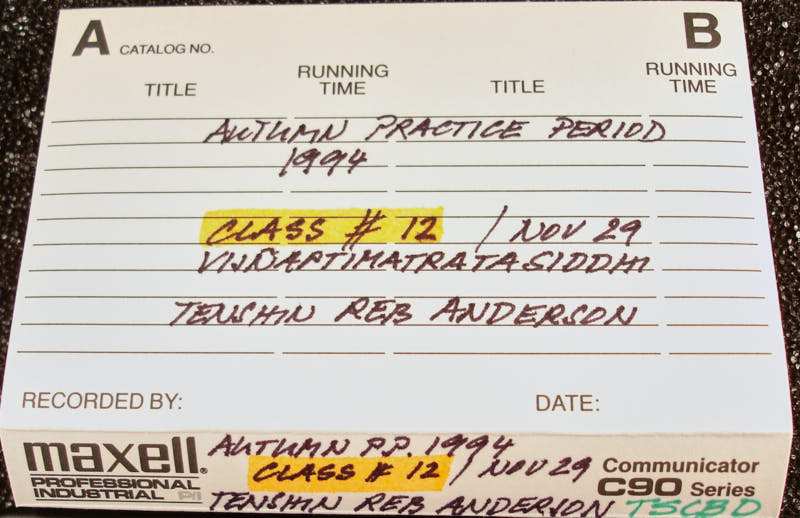 A CATALOG NO. B
TITLE RUNNING TIME TITLE RUNNING TIME
AUTUMN PRACTICE PERIOD
1994
CLASS # 12 / NOV 29
VIJÑAPTIMATRATASIDDHI
TENSHIN REB ANDERSON
RECORDED BY: DATE:
maxell® AUTUMN P.P. 1994
CLASS # 12 / NOV 29 Communicator
PROFESSIONAL INDUSTRIAL P/I C90 Series
TENSHIN REB ANDERSON TSCBD